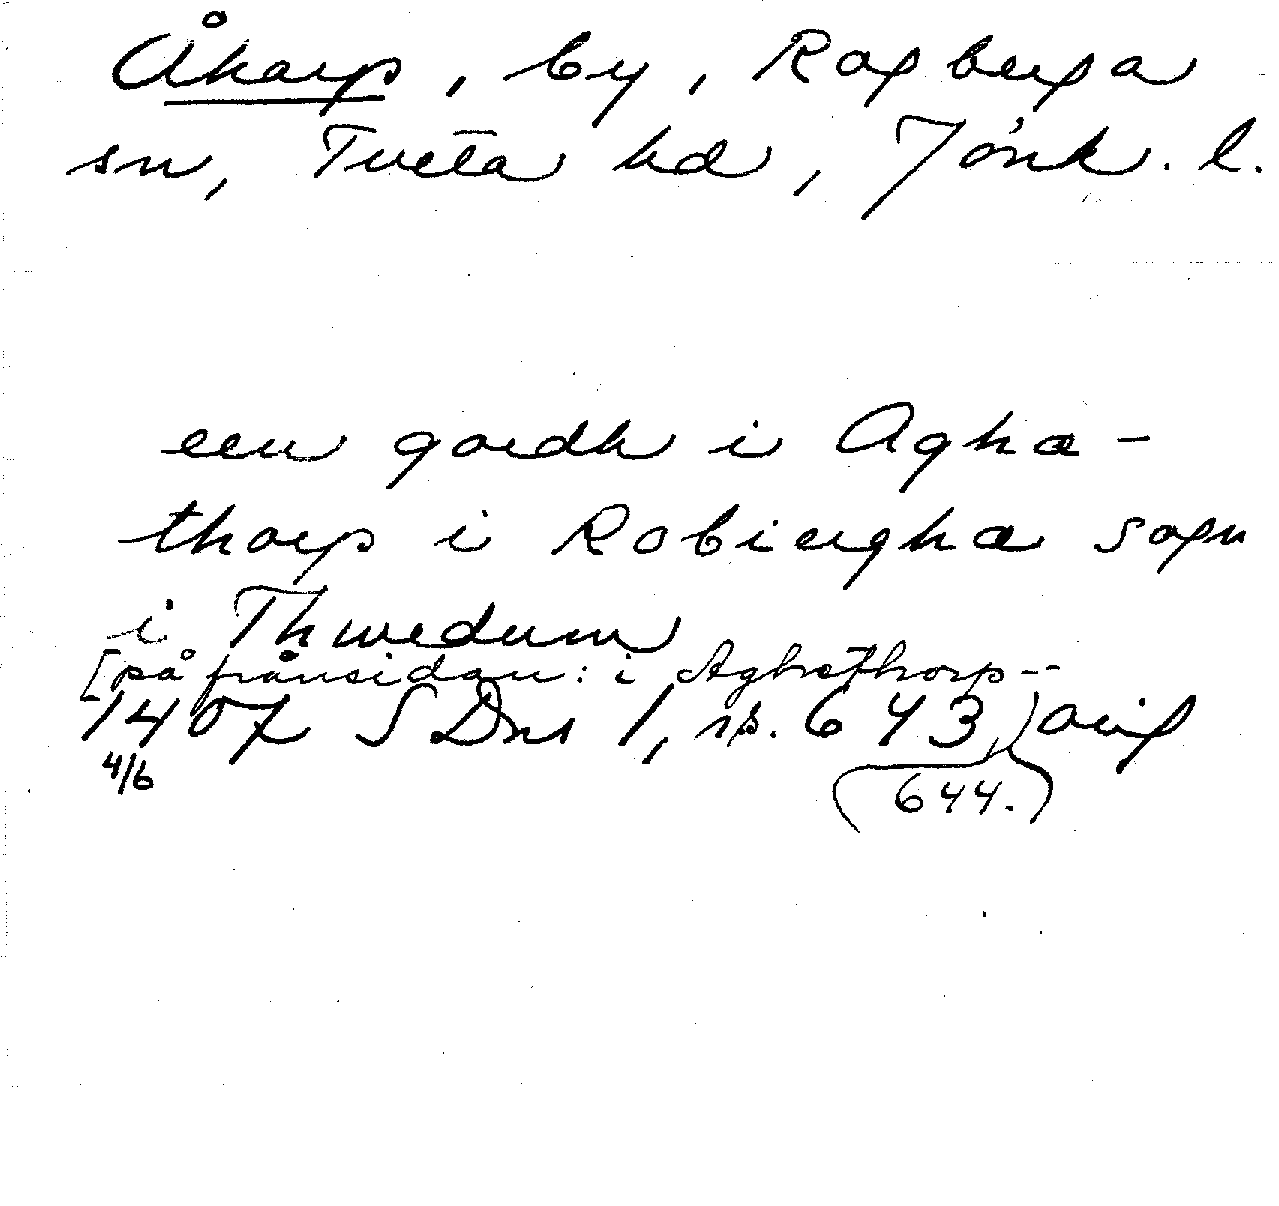 Åkarp, by, Rogberga
sn, Tveta hd, Jönk. l.
een gardh i Aghæ-
thorp i Robiergha sogn
i Thwedum
[på frånsidan: i Aghethorp--
1407 SDns 1, ns. 643, orig
4/6
(644.)